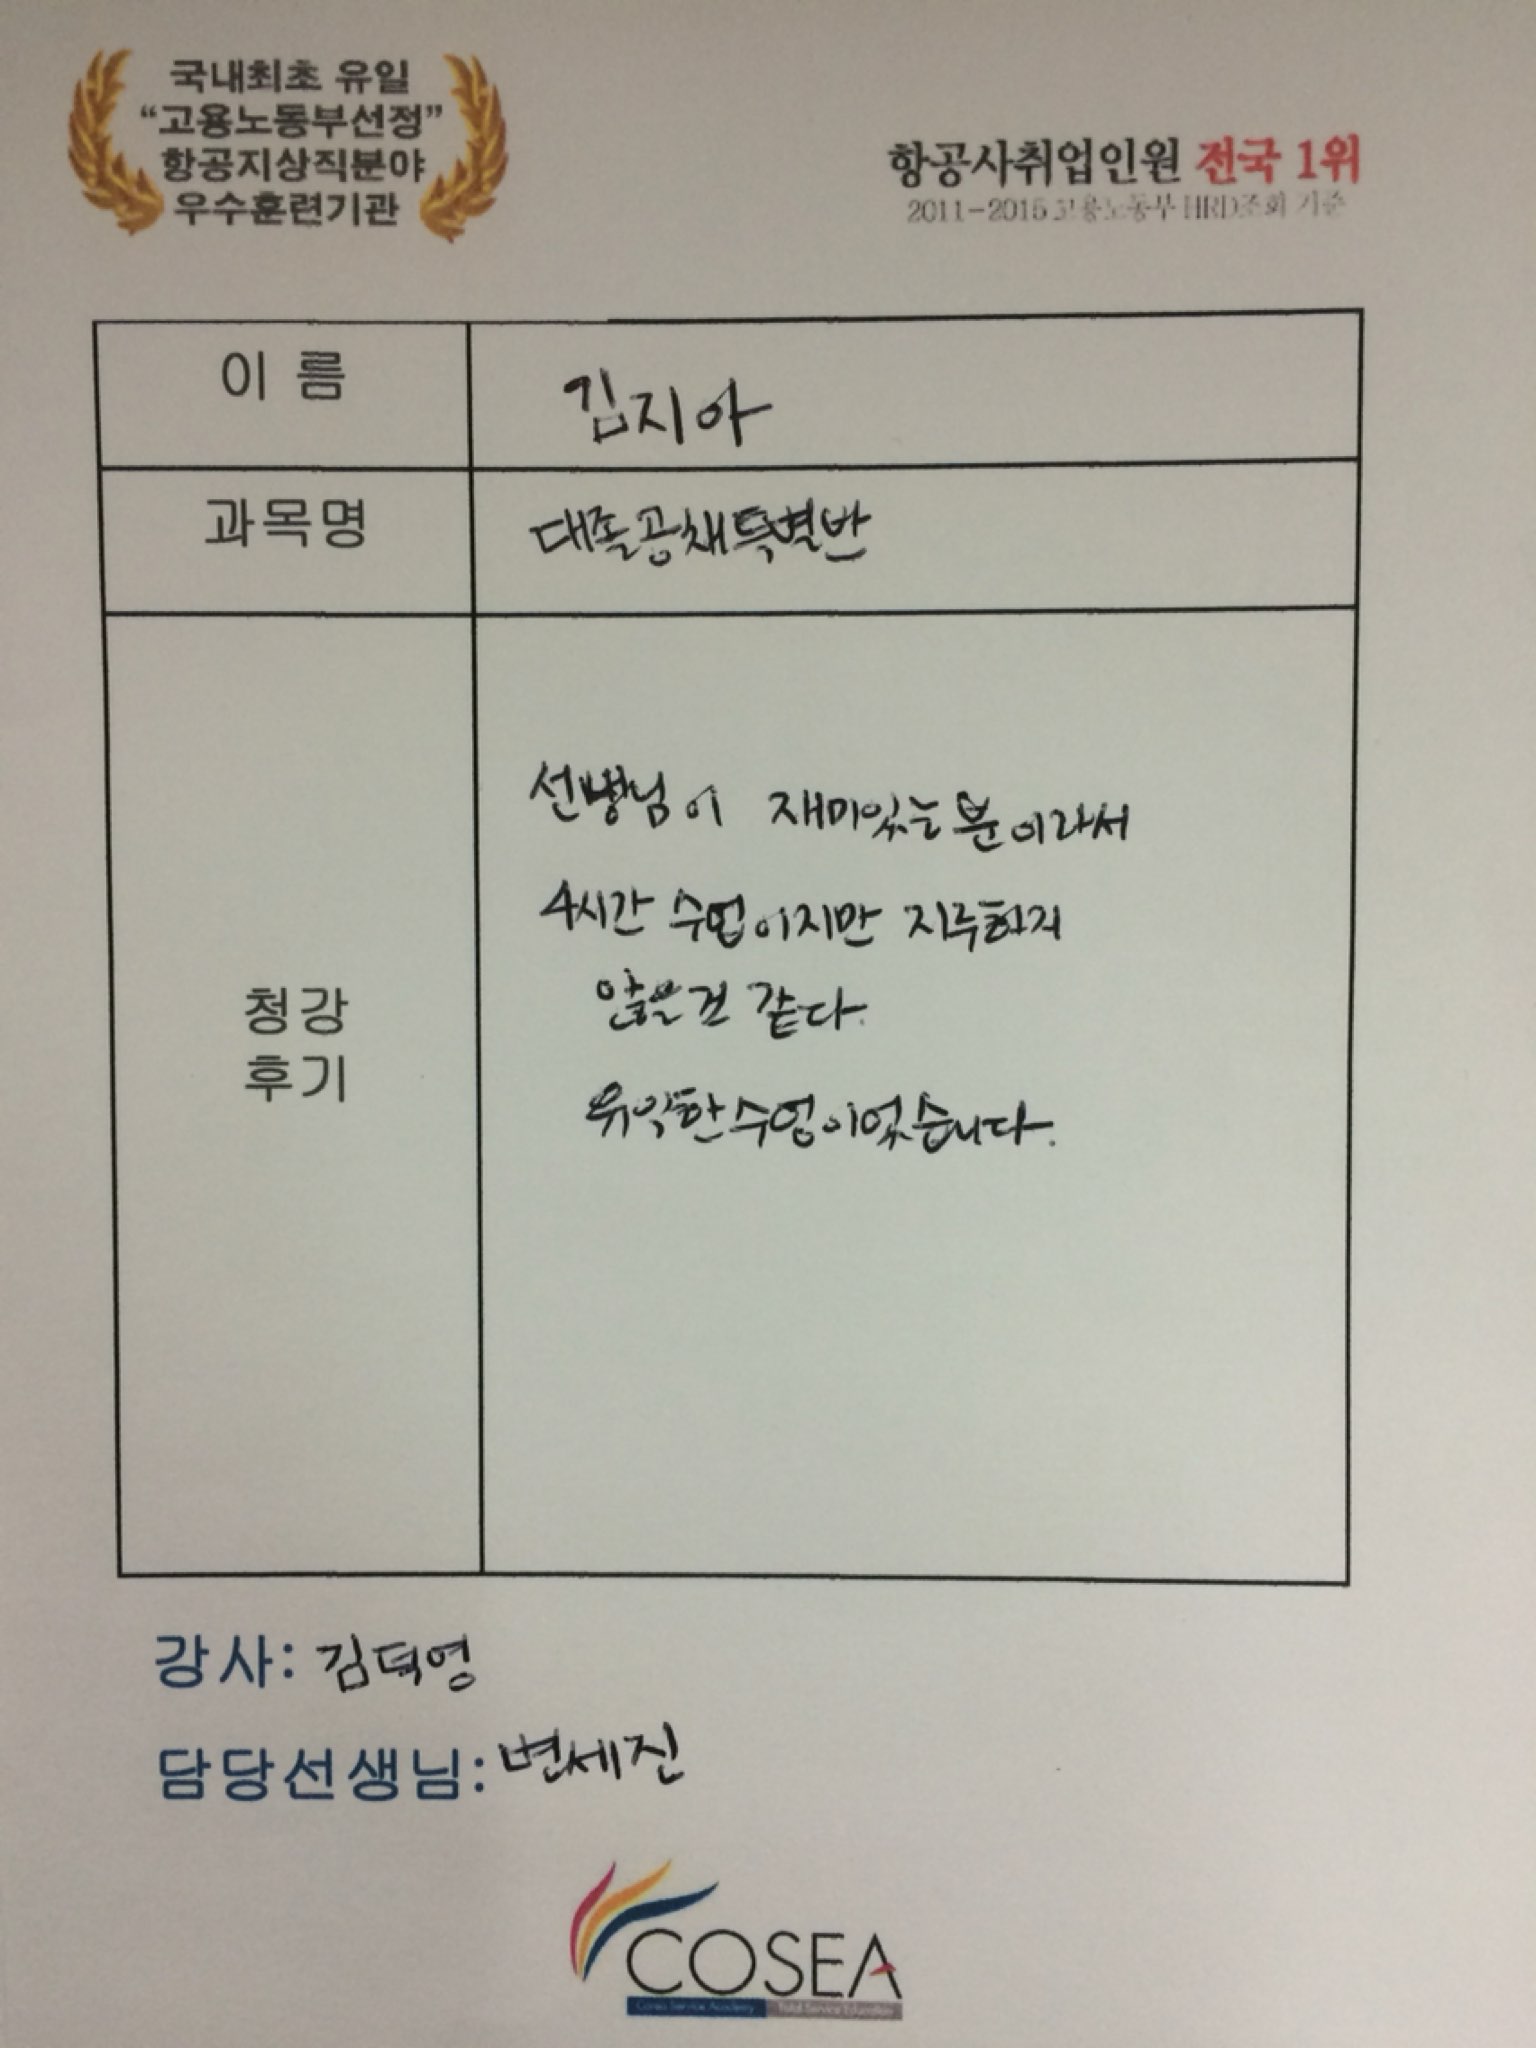 국내최초 유일
“고용노동부선정”
항공지상직분야
우수훈련기관
항공사취업인원 전국 1위
2011-2015 고용노동부 HRD조회 기준
이 름
김지아
과목명
대졸공채특별반
청강
후기
선생님이 재미있는 분이라서
4시간 수업이지만 지루하지
않을건 같다.
유익한 수업이었습니다.
강사: 김덕영
담당선생님: 변세진
COSEA
Cosea Service Academy Total Service Education